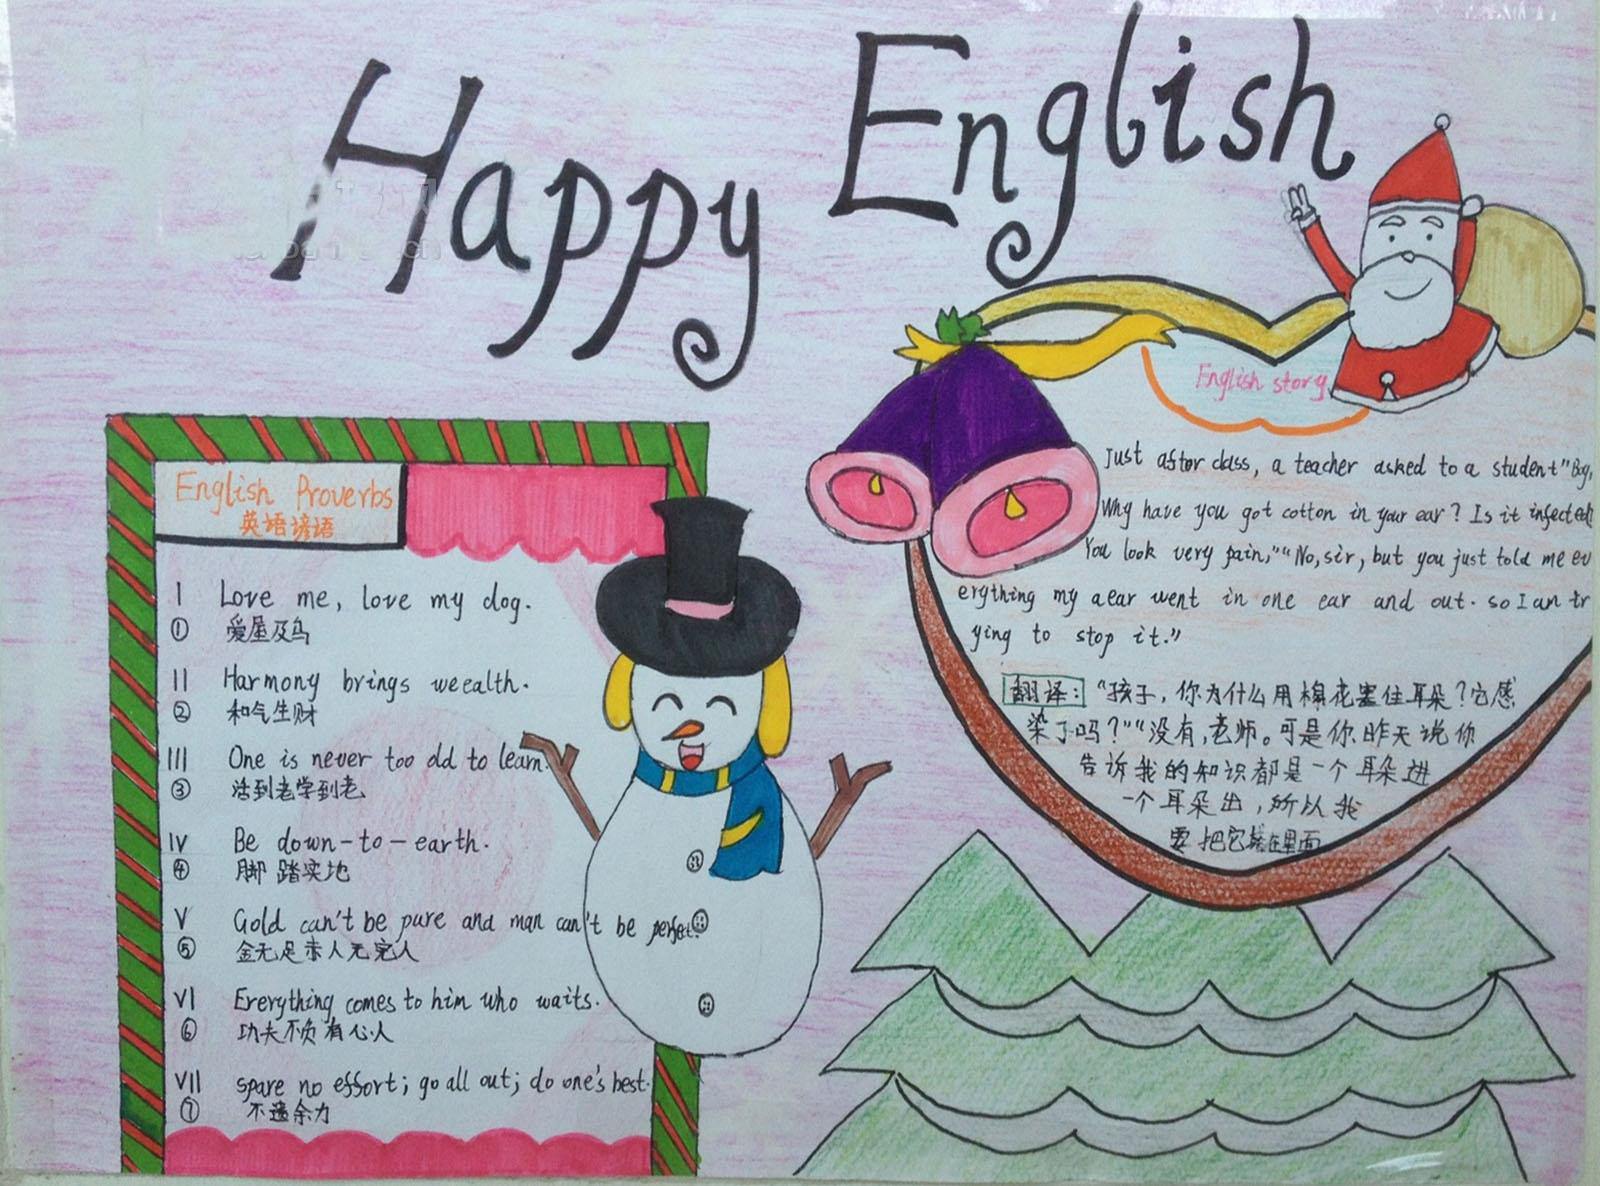 Happy English
English Proverbs
英语谚语
I Love me, love my dog.
① 爱屋及乌
II Harmony brings weealth.
② 和气生财
III One is never too old to learn.
③ 活到老学到老
IV Be down-to-earth.
④ 脚踏实地
V Gold can't be pure and man can't be perfect.
⑤ 金无足赤人无完人
VI Ererything comes to him who waits.
⑥ 功夫不负有心人
VII spare no effort; go all out; do one's best.
⑦ 不遗余力
English story
Just after class, a teacher asked to a student "Boy,
Why have you got cotton in your ear? Is it infected?
You look very pain," "No, sir, but you just told me ev
erything my aear went in one ear and out. so I an tr
ying to stop it."
翻译: "孩子, 你为什么用棉花塞住耳朵? 它感
染了吗?" "没有, 老师。可是你昨天说你
告诉我的知识都是一个耳朵进
一个耳朵出, 所以我
要把它在里面